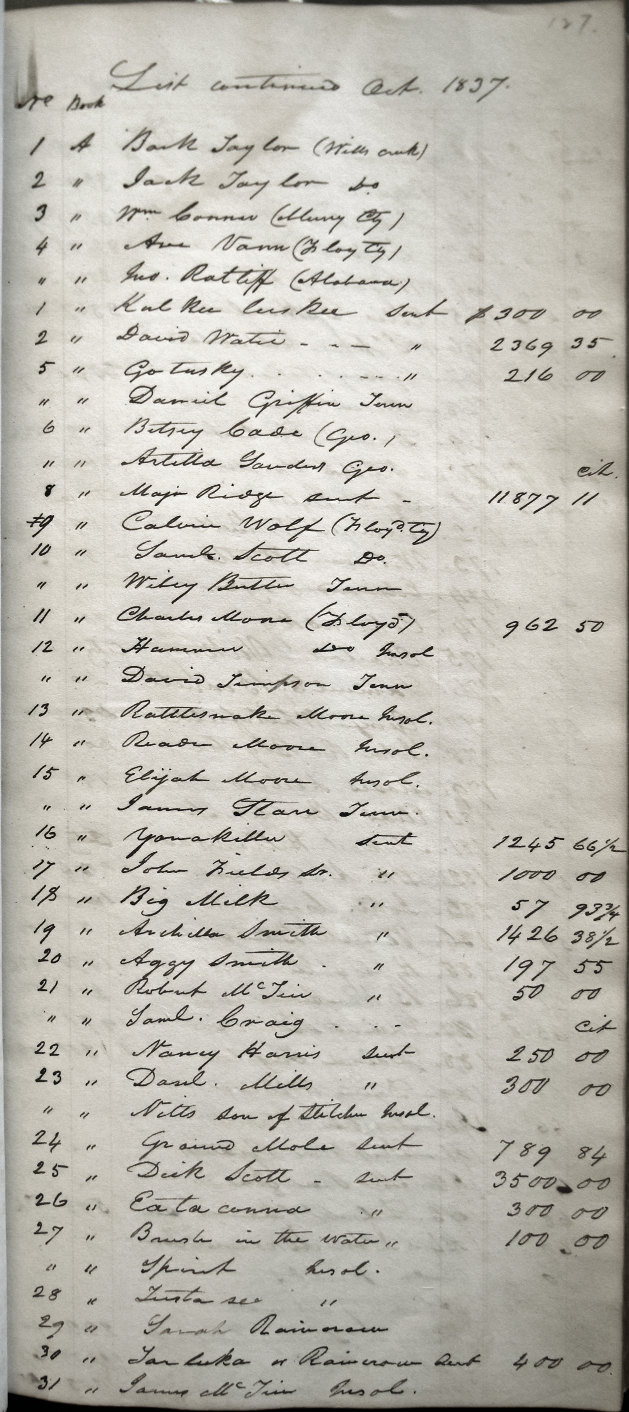 127.
List continued Oct. 1837.
No Book
1 A Bark Taylor (Wills creek)
2 " Jack Taylor Do
3 " Wm Conner (Murry Cty)
4 " Ave Vann (Floy Ty)
" " Jno. Ratliff (Alabama)
1 " Kul Kee Luskee sent $300 00
2 " David Watie - - - " 2369 35
5 " Gotusky . . . . . . " 216 00
" " Daniel Griffin Tenn
6 " Betsey Cade (Geo.)
" " Artilla Sanders Geo. cit.
8 " Major Ridge sent - 11877 11
9 " Calvin Wolf (Floyd. Cty)
10 " Saml. Scott Do.
" " Wiley Butler Tenn
11 " Charles Moore (Floyd) 962 50
12 " Hammer Do Insol
" " David Timpson Tenn
13 " Rattlesnake Moore Insol.
14 " Reader Moore Insol.
15 " Elijah Moore Insol.
" " James Starr Tenn.
16 " Yonakiller sent 1245 66 1/2
17 " John Fields Sr. " 1000 00
18 " Big Milk " 57 93 3/4
19 " Archilla Smith " 1426 38 1/2
20 " Aggy Smith . " 197 55
21 " Robert McTier " 50 00
" " Saml. Craig . - - cit
22 " Nancy Harris sent 250 00
23 " Danl. Mills " 300 00
" " Nitts son of Stitcher Insol.
24 " Ground Mole sent 789 84
25 " Dick Scott - sent 3500 00
26 " Eata conna " 300 00
27 " Brush in the water " 100 00
" " Spirit Insol.
28 " Tusta see "
29 " Sarah Raincrow
30 " Tarluka or Raincrow sent 400 00
31 " James McTier Insol.